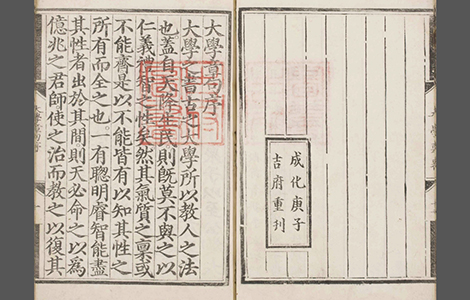 成化庚子
吉府重刊
大學章句序
大學之書古之大學所以教人之法
也蓋自天降生民則既莫不與之以
仁義禮智之性矣然其氣質之稟或
不能齊是以不能皆有以知其性之
所有而全之也一有聰明睿智能盡
其性者出於其間則天必命之以為
億兆之君師使之治而教之以復其